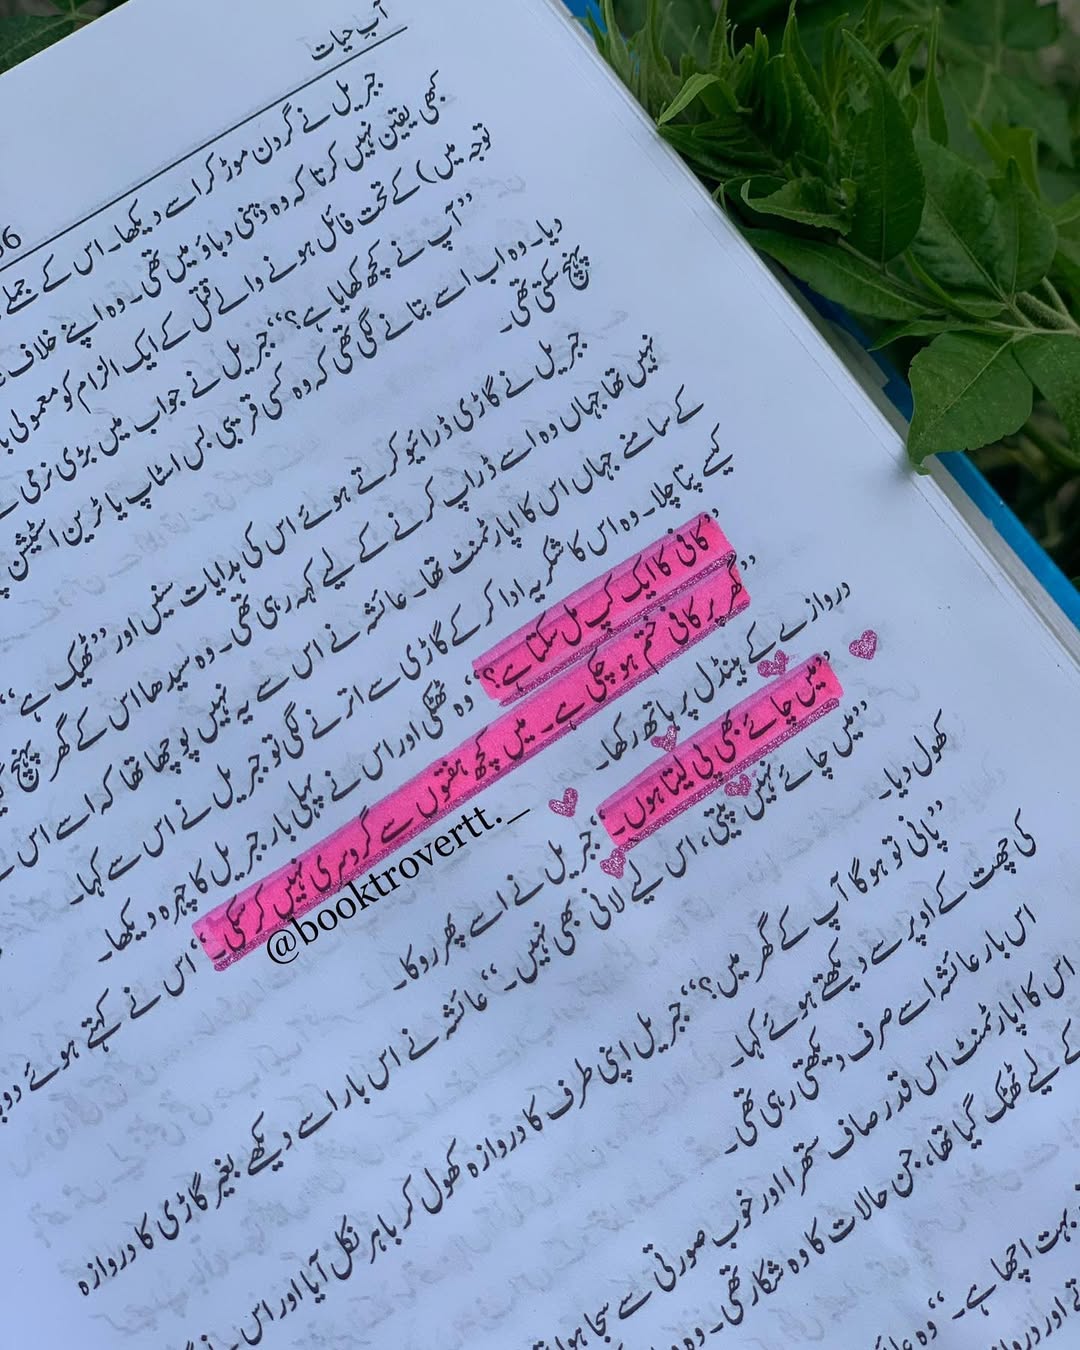 آبِ حیات
جبریل نے گردن موڑ کر اسے دیکھا۔ اس کے جملے
کبھی یقین نہیں کرتا کہ وہ ذہنی دباؤ میں تھی۔ وہ اپنے خلاف
توجہ میں) کے تحت فائل ہونے والے قتل کے ایک الزام کو معمولی
"آپ نے کچھ کھایا ہے؟" جبریل نے جواب میں بڑی نرمی
دیا۔ وہ اب اسے بتانے لگی تھی کہ وہ کسی قریبی بس اسٹاپ یا ٹرین اسٹیشن
پہنچ سکتی تھی۔
جبریل نے گاڑی ڈرائیو کرتے ہوئے اس کی ہدایات سنیں اور "ٹھیک ہے"
نہیں تھا جہاں وہ اسے ڈراپ کرنے کے لیے کہہ رہی تھی۔ وہ سیدھا اس کے گھر پہنچ
کے سامنے جہاں اس کا اپارٹمنٹ تھا۔ عائشہ نے اس سے یہ نہیں پوچھا تھا کہ اسے اس
کیسے پتا چلا۔ وہ اس کا شکریہ ادا کر کے گاڑی سے اترنے لگی تو جبریل نے اس سے کہا۔
"کافی کا ایک کپ مل سکتا ہے؟" وہ ٹھٹکی اور اس نے پہلی بار جبریل کا چہرہ دیکھا۔
"گھر پر کافی ختم ہو چکی ہے۔ میں کچھ ہفتوں سے گروسری نہیں کر سکی۔" اس نے کہتے ہوئے
دروازے کے ہینڈل پر ہاتھ رکھا۔
"میں چائے بھی پی لیتا ہوں۔" جبریل نے اسے پھر روکا۔
"میں چائے نہیں پیتی، اس لیے لائی بھی نہیں۔" عائشہ نے اس بار اسے دیکھے بغیر گاڑی کا دروازہ
کھول دیا۔
"پانی تو ہو گا آپ کے گھر میں؟" جبریل اپنی طرف کا دروازہ کھول کر باہر نکل آیا اور اس نے
کی چھت کے اوپر سے دیکھتے ہوئے کہا۔
اس بار عائشہ اسے صرف دیکھتی رہی تھی۔
اس کا اپارٹمنٹ اس قدر صاف ستھرا اور خوب صورتی سے سجا ہوا
کے لیے ٹھٹک گیا تھا، جن حالات کا وہ شکار تھی۔ وہ
بہت اچھا ہے۔" وہ
@booktrovertt._